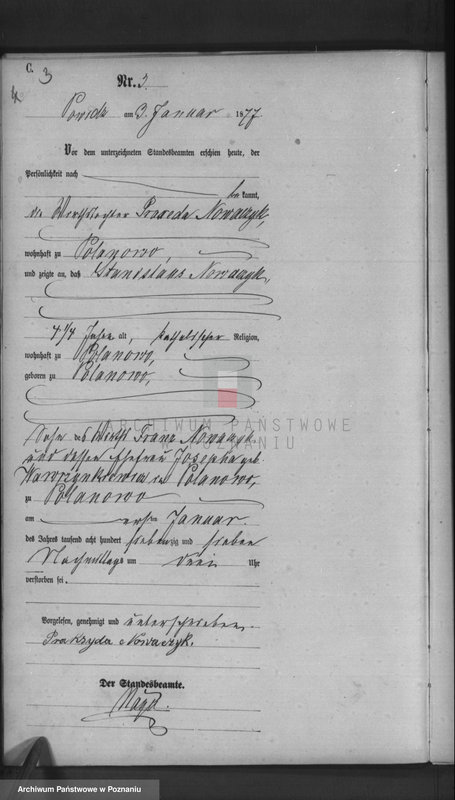 C. 3
Nr. 3.
Powidz am 3. Januar 1877
Vor dem unterzeichneten Standesbeamten erschien heute, der
Persönlichkeit nach
be kannt,
die Wirthstochter Nowaczyk,
wohnhaft zu Polanowo,
und zeigte an, daß Stanislaus Nowaczyk,
4 1/4 Jahre alt, katholischer Religion,
wohnhaft zu Polanowo,
geboren zu Polanowo,
ARCHIWUM PAŃSTWOWE
W POZNANIU
Sohn des Wirth Franz Nowaczyk
und dessen Ehefrau Josepha geb.
in Polanowo,
zu Polanowo
am ersten Januar
des Jahres tausend acht hundert siebenzig und sieben
Nachmittags um drei Uhr
verstorben sei.
Vorgelesen, genehmigt und unterschrieben.
Prakzyda Nowaczyk.
Der Standesbeamte.
Archiwum Państwowe w Poznaniu